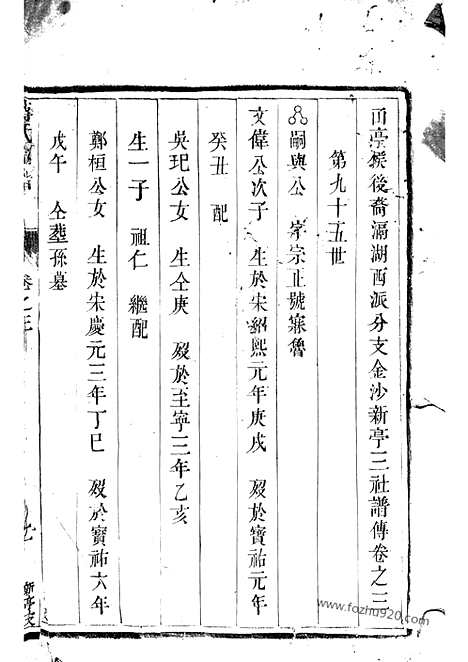 亭侯後裔滆湖西派分支金沙新亭三社譜傳卷之三
第九十五世
嗣興公 字宗正號寐魯
文偉公次子 生於宋紹熙元年庚戌 歿於寶祐元年
癸丑 配
吳玘公女 生仝庚 歿於至寧三年乙亥
生一子 祖仁 繼配
鄭桓公女 生於宋慶元三年丁巳 歿於寶祐六年
戊午 仝塟孫墓
氏 譜 卷之三
新亭
www.fozhu920.com